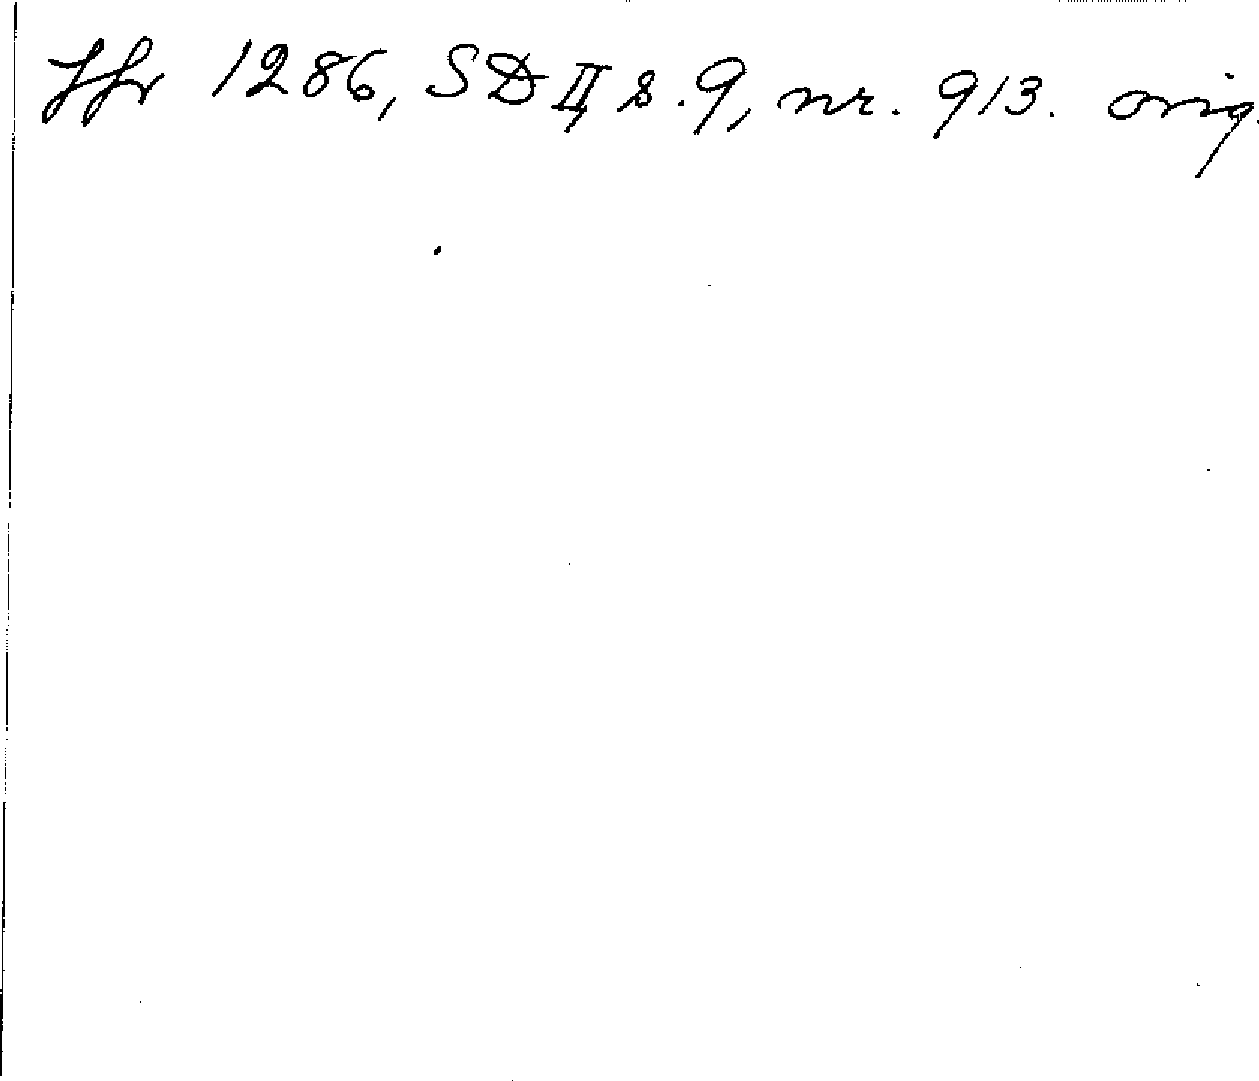 Jfr 1286, SD II, s. 9, nr. 913. orig.